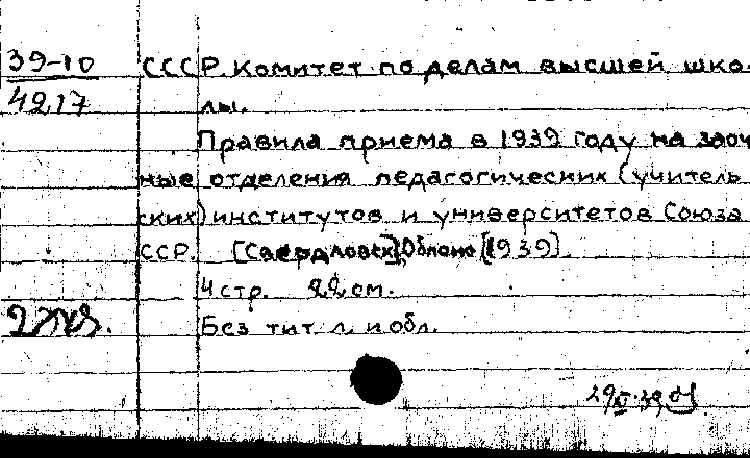 39-10
4217
СССР. Комитет по делам высшей шко-
лы.
Правила приема в 1939 году на заоч
ные отделения педагогических (учитель
ских) институтов и университетов Союза
ССР. [Свердловск], Облоно [1939].
4 стр. 22 см.
2 экз.
Без тит. л. и обл.